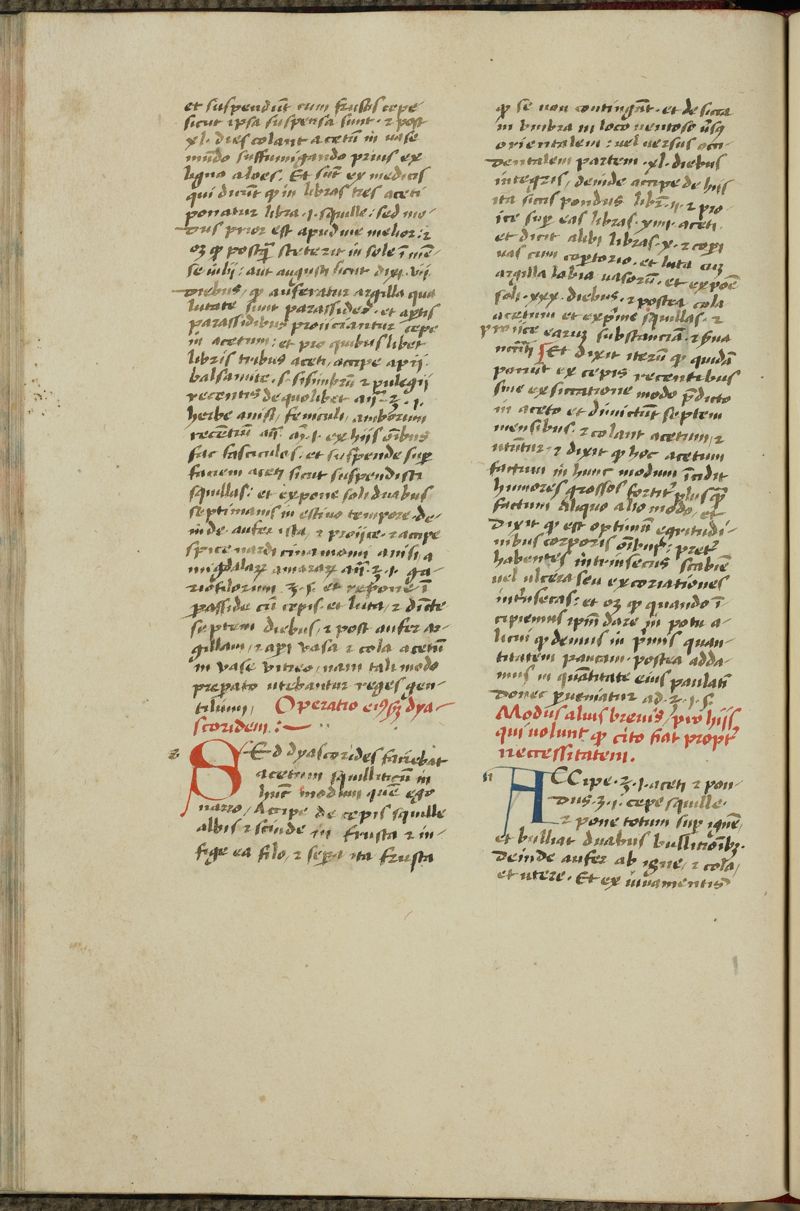 et suspendūt cum frustis cepe
sicut ipsa suspensa sunt · ⁊ post
xl· dies colant acetū in vase
mūdo suffumigando prius ex
ligno aloes· Et sūt ex medicis
qui dicūt ꝙ in libras tres aceti
ponatur libra ·j· squille: sed mo-
dus prior est apud me melior: ⁊
oꝫ ꝙ postꝙ̄ steterit in sole ī mē-
se iulij: aut augusti sicut dixi ·vij·
diebus, ꝙ auferatur argilla qua
lutate sunt parassides · et aꝑtis
parassidibus proijciantur cepe
in acetum: et pro quibus libet
libris tribus aceti, accipe apij·
balsamite· s· sisimbrū ⁊ pulegij
recentis de quolibet aū· ʒ· j·
herbe anisi, feniculi, amborum
recētiū aū· j· ex hijs oībus
fac fasciculos· et suspende suꝑ
faciem aceti sicut suspendisti
squillas: et expone soli duabus
septimanis in estiuo tempore· de-
inde aufer ista, ⁊ proijce· ⁊ accipe
spice nardi cinamomi anisi a
migdalaꝝ amaraꝝ aū· ʒ· j· ga-
riofilorum ʒ· s· et repone ī
ꝑasside cū cepis· et luta, ⁊ dīcte
septem diebus, ⁊ post aufer ar-
gillam, ⁊ aꝑi vasa ⁊ cola acetū
in vase vitreo, nam tali modo
preperato vtebantur reges gen-
tilium, Operatio eiꝰ sꝫ dya-
scoridem:
SEd dyascorides faciebat
acetum squilliticū in
hūc modum quē ego
narro, Accipe de cepis squille
albis ⁊ scinde in frusta ⁊ in-
fige ea filo, ⁊ seꝑa ita frusta
ꝙ se non contingāt· et desicca
in vmbra in loco ventoso v̄sꝰ
orientalem: vel versus occi-
dentalem partem ·xl· diebus
integris, deinde accipe de hijs
ita siccis pondus libr· ij· ⁊ pro-
ice suꝑ eas libras ·viij· aceti·
et dicit alibi libras ·x· ⁊ coꝑi
vas cum coꝑtorio· et luta cū
argilla labia vasorū· et expōe
soli ·xxx· diebus· ⁊ postea cola
acetum et exp̄me squillas· ⁊
proijce earuꝫ substanciā· ⁊ s̄ua
Et dixit iterū ꝙ quidā
pariūt ex cepis recentibus
sine exsiccatione modo p̄dicto
in aceto et dimictūt septem
mensibus· ⁊ colant acetum, ⁊
utūtur, ⁊ dixit ꝙ hoc acetum
factum in hunc modum īcidit
humores grossos fortiꝰ plusꝙ̄
factum aliquo alio modo, et
dixit ꝙ est optimū egritudi-
nibus corporis oībus: preter
habentes intrinsecus scabiē
vel ulcera seu excoriationes
intrīsecas: et oꝫ ꝙ quando ī-
cipiemus ipm̄ dare in potu a-
licui ꝙ demus in p̄mis quan-
titatem paucam· postea adda-
mus in quātitate eius paulati
donec ꝑueniatur ad· ʒ· j· s·
Modus alius breuis, pro hijs
qui volunt ꝙ cito fiat propt̄
neccessitatem.
ACCipe ·ʒ· j· aceti ⁊ pon-
dus ·ʒ· j· cepe squille·
⁊ pone totum suꝑ ignē,
et bulliat duabus bullitiōibꝫ·
deinde aufer ab igne, ⁊ cola,
et utere· Et ex iuuamentis